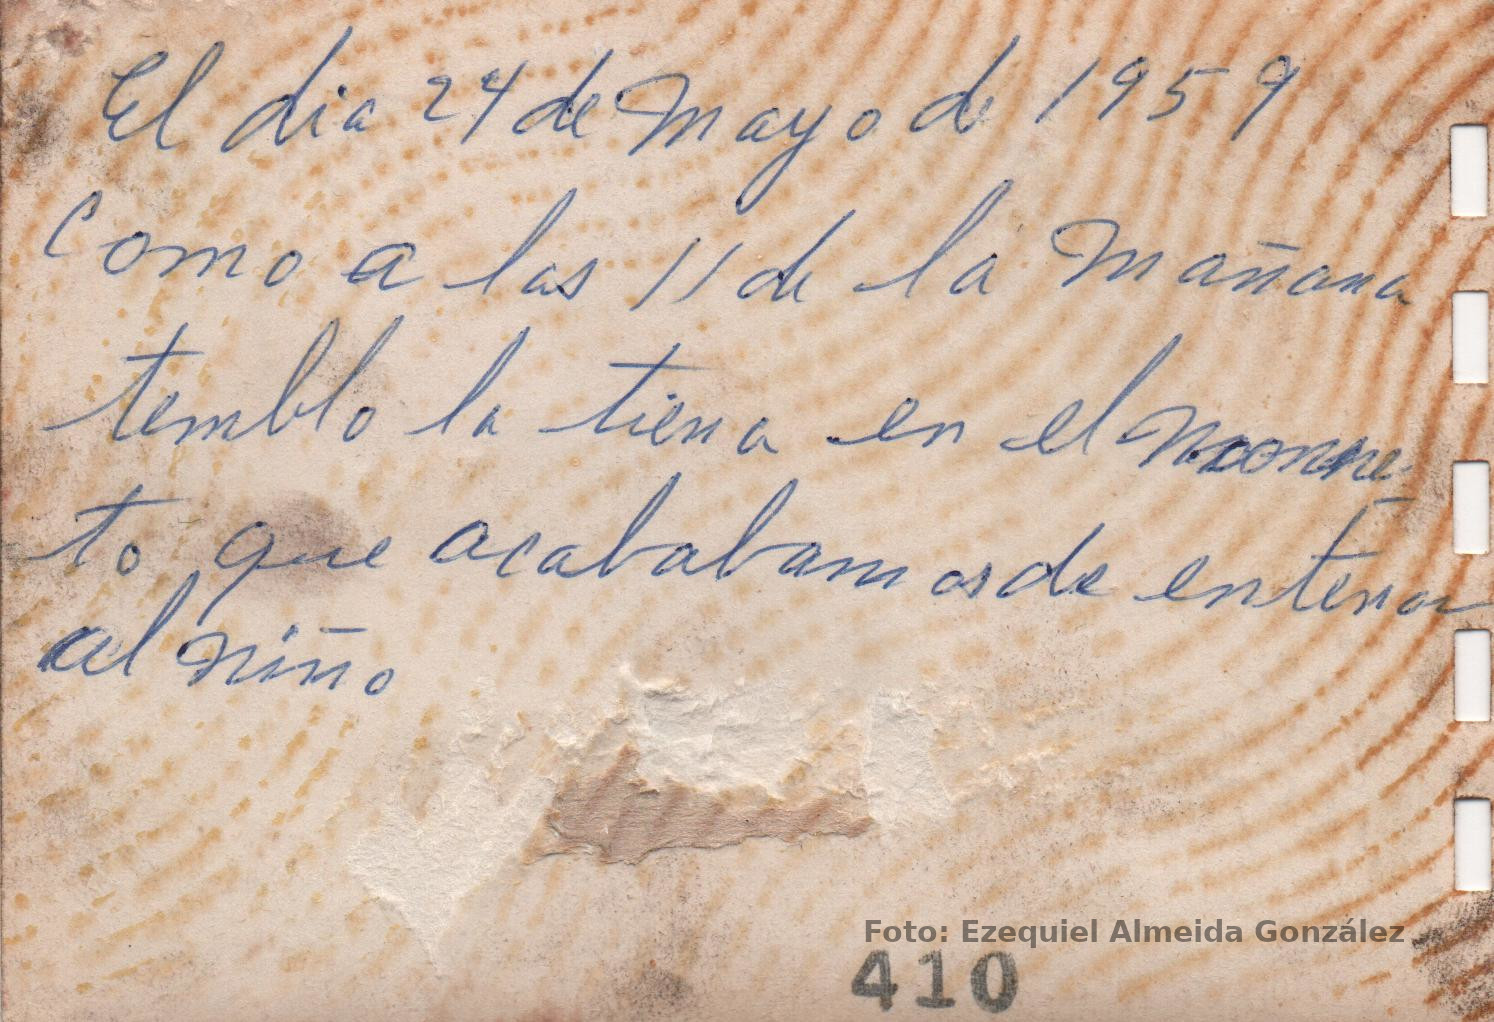 El dia 24 de Mayo de 1959
Como a las 11 de la Mañana
temblo la tierra en el Momen-
to que acababamos de enterrar
al niño
Foto: Ezequiel Almeida González
410